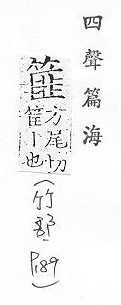 四聲篇海
篚
方尾切
筐卜也
(竹部
P189)